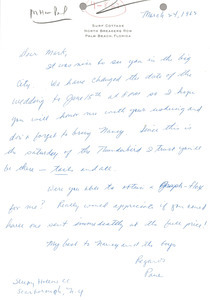 March 24, 1962
SURF COTTAGE
NORTH BREAKERS ROW
PALM BEACH, FLORIDA
Dear Mark,
It was nice to see you in the big
city. We have changed the date of the
wedding to June 15th at so I hope
you will honor me with your ushering and
don't forget to bring Nancy. Since this is
the Saturday of the Thunderbird I trust you'll
be there - tails and all.
Were you able to obtain a
for me? Really would appreciate if you could
have one sent immediately at the full price!
My best to Nancy and the boys
Regards